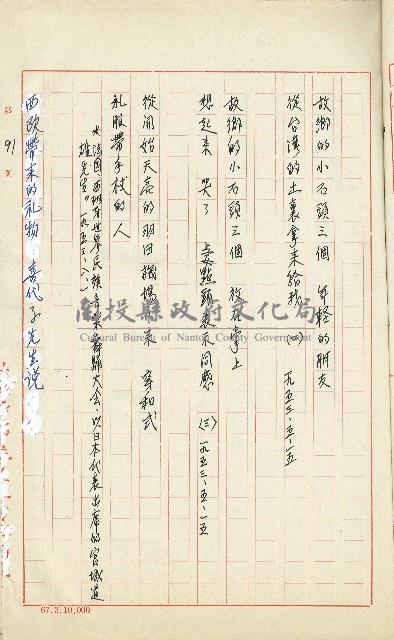 故鄉的小石頭三個 年輕的朋友
從台灣的土裏拿來給我 (二) 一九五三、五、一五
故鄉的小石頭三個 放在掌上
想起來 哭了 妻點頭表示同感 (三) 一九五三、五、一五
從開始天亮的羽田機場來 穿和式
礼服帶手杖的人
※法国、西班牙世界民族音樂舞踊大会、以日本代表出席的宮城道
雄先生。一九五三、八、
西欧帶來的礼物 喜代子先生説
91
頁
南投縣政府文化局
Cultural Bureau of Nantou County Government
67.3.10,000